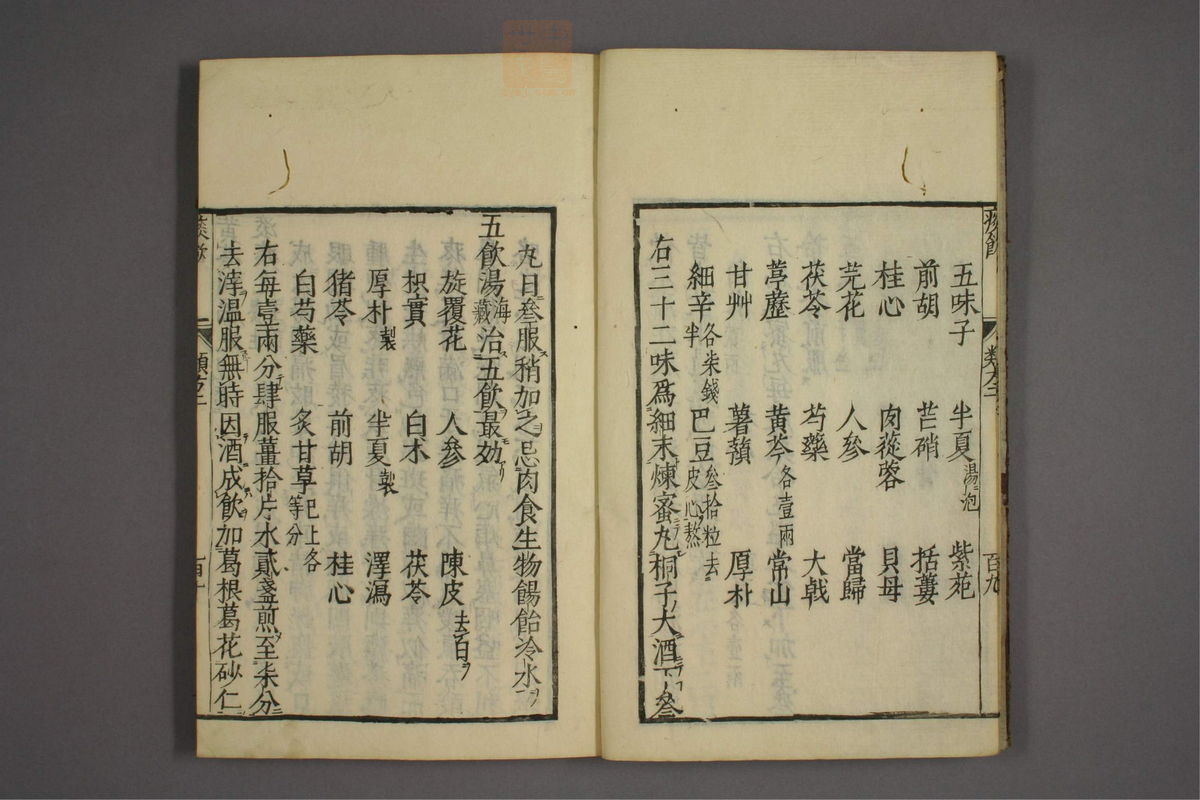 痰飲
類方
百九
五味子 半夏湯泡 紫苑
前胡 芒硝 括蔞
桂心 肉蓯蓉 貝母
芫花 人參 當歸
茯苓 芍藥 大戟
葶藶 黃芩各壹兩 常山
甘艸 薯蕷 厚朴
細辛各柒錢半 巴豆叁拾粒去皮心熬
右三十二味爲細末煉蜜丸桐子大酒下叁
丸日叁服稍加之忌肉食生物餳飴冷水
五飲湯海藏治五飲最効
旋覆花 人參 陳皮去白
枳實 白朮 茯苓
厚朴製 半夏製 澤瀉
猪苓 前胡 桂心
白芍藥 炙甘草已上各等分
右每壹兩分肆服薑拾片水貳盞煎至柒分
去滓溫服無時因酒成飲加葛根葛花砂仁